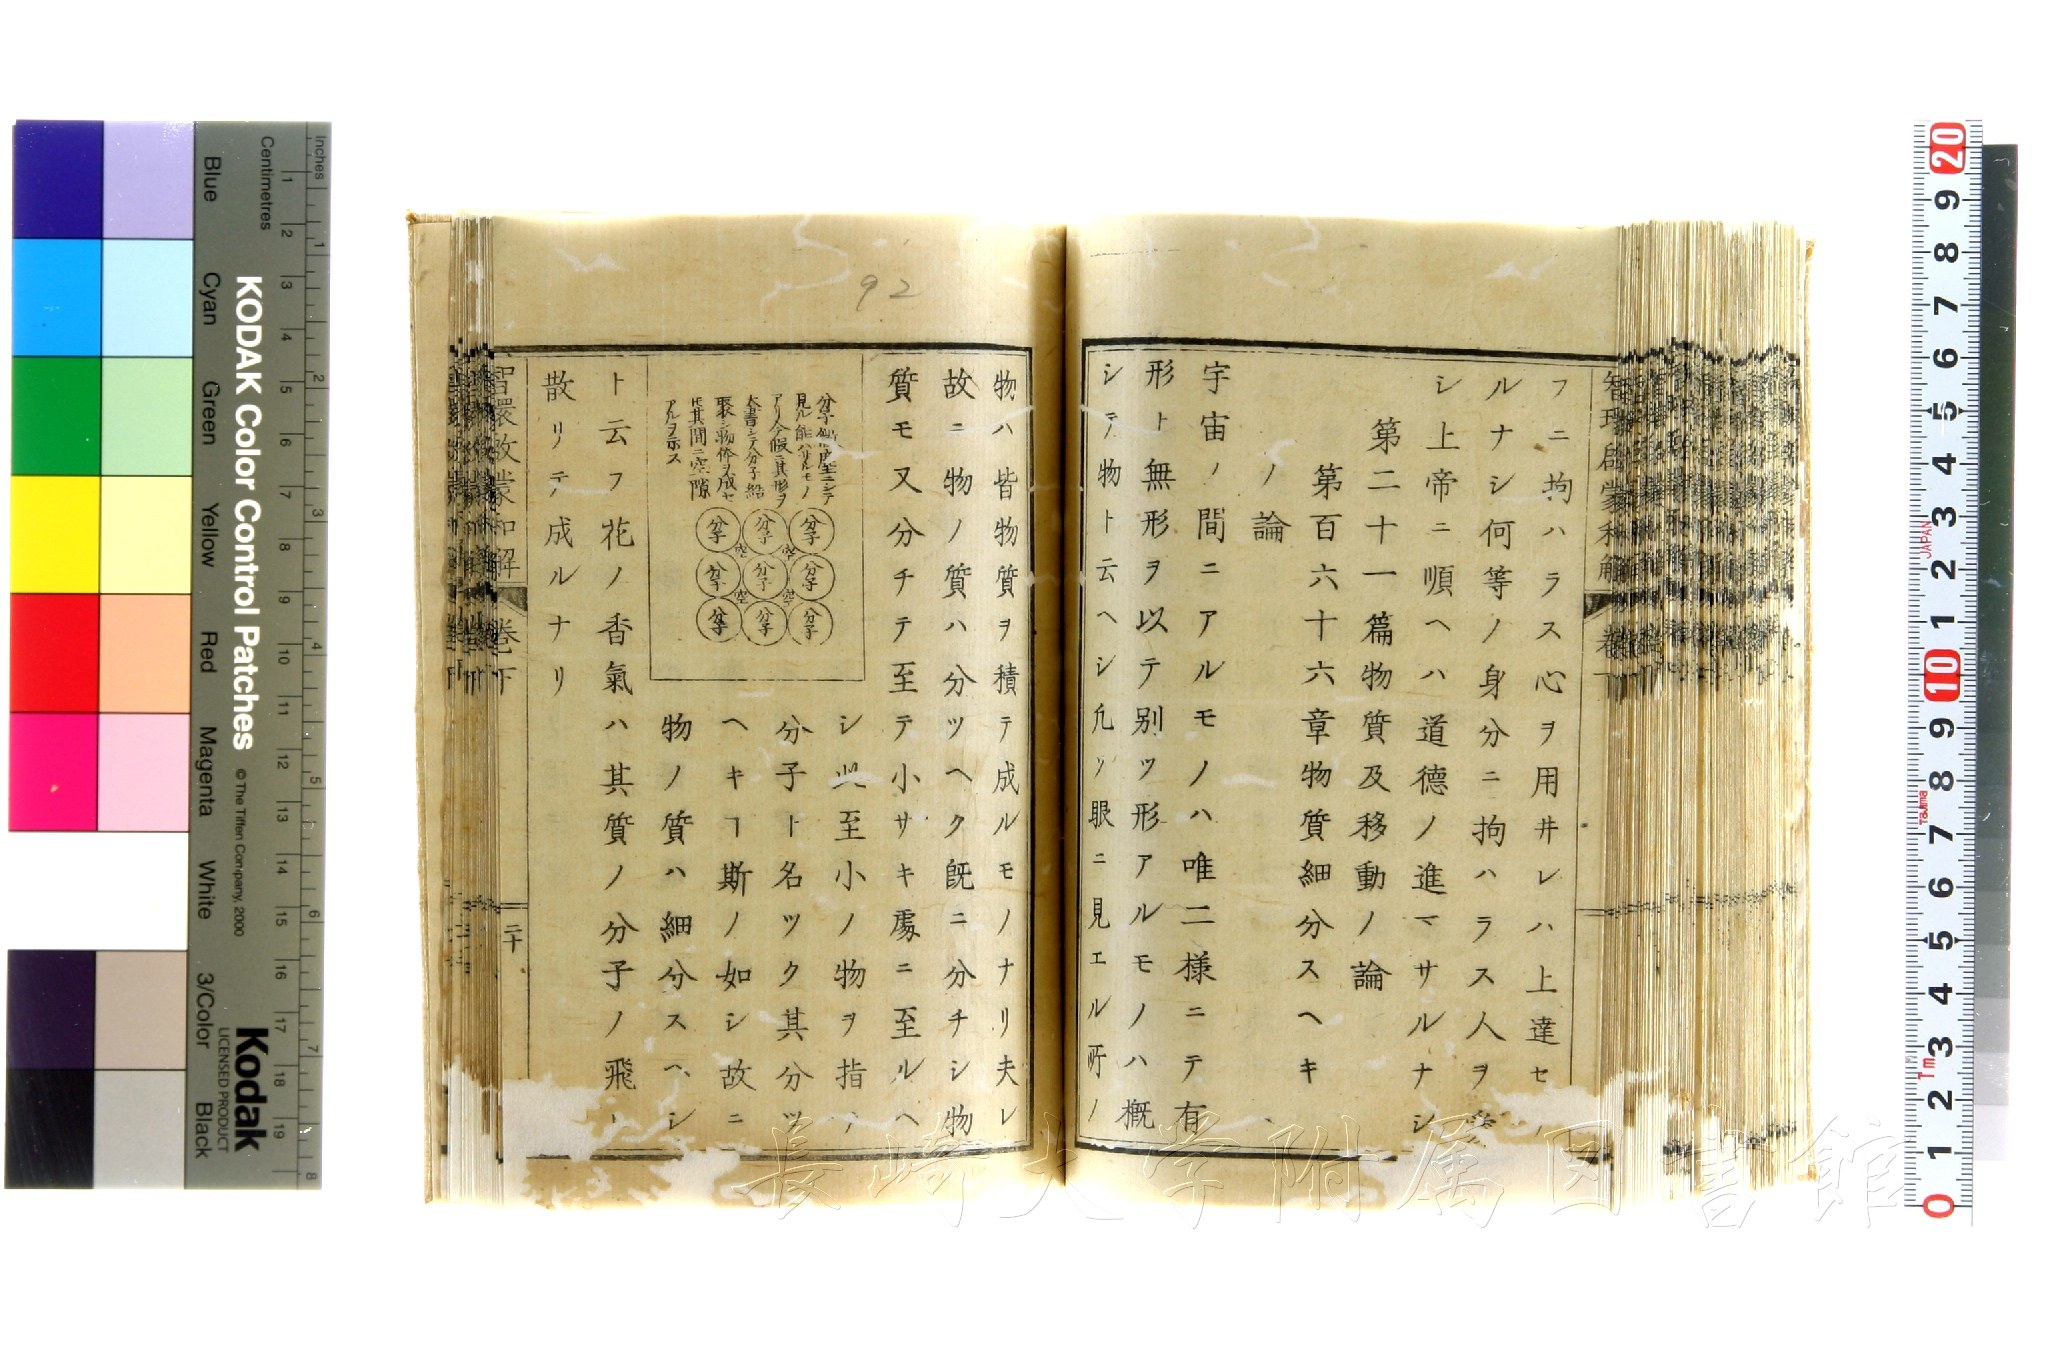 フニ拘ハラス心ヲ用井レハ上達セ
ルナシ何等ノ身分ニ拘ハラス人ヲ
シ上帝ニ順ヘハ道德ノ進マサルナシ
第二十一篇物質及移動ノ論
第百六十六章物質細分スヘキ
ノ論
宇宙ノ間ニアルモノハ唯二様ニテ有
形ト無形ヲ以テ别ツ形アルモノハ概
シテ物ト云ヘシ凡ソ眼ニ見エル所ノ
智環啓蒙和解
卷
92
物ハ皆物質ヲ積テ成ルモノナリ夫レ
故ニ物ノ質ハ分ツヘク既ニ分チシ物
質モ又分チテ至テ小サキ處ニ至ルヘ
シ此至小ノ物ヲ指
分子ト名ツク其分ツ
ヘキヿ斯ノ如シ故ニ
物ノ質ハ細分スヘシ
分子 至ニシテ
見ル能ハサルモノ
アリ今假ニ其形ヲ
大書シテ分子結
聚シ物体ヲ成セ
ㇳ其間ニ空隙
アルヲ示ス
分子 分子 分子
空 空
分子 分子 分子
空 空
分子 分子 分子
ト云フ花ノ香氣ハ其質ノ分子ノ飛
散リテ成ルナリ
智環啓蒙和解
卷下
二十
KODAK Color Control Patches
© The Tiffen Company, 2000
Kodak
LICENSED PRODUCT
Inches
Centimetres
Blue
Cyan
Green
Yellow
Red
Magenta
White
3/Color
Black
1 2 3 4 5 6 7 8 9 10 11 12 13 14 15 16 17 18 19
1 2 3 4 5 6 7 8
20 9 8 7 6 5 4 3 2 1 10 9 8 7 6 5 4 3 2 1 0
JAPAN
Tajima
Tm
長崎大学附属図書館